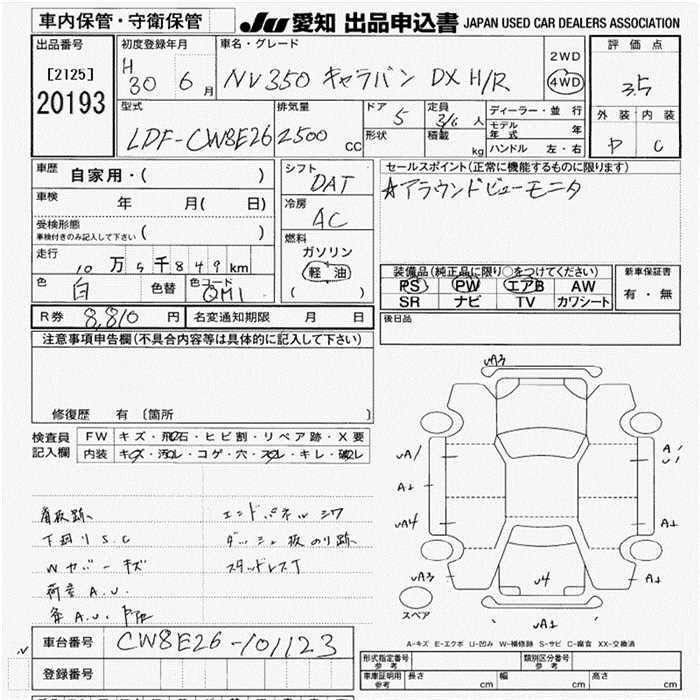 車内保管・守衛保管
JU 愛知 出品申込書 JAPAN USED CAR DEALERS ASSOCIATION
出品番号
[2125]
20193
初度登録年月
H 30 6月
車名・グレード
NV350 キャラバン DX H/R
2WD
4WD
評価点
3.5
外装 内装
D C
型式
LDF-CW8E26
排気量
2500 cc
ドア
5
形状
定員
3/6人
積載 kg
ディーラー・並行
モデル年式 年
ハンドル 左・右
車歴
自家用・( )
車検
年 月( 日)
受検形態
車検付きのみ記入して下さい ( )
走行
10万5千849km
色
白
色替
色コード
QM1
シフト
DAT
冷房
AC
燃料
ガソリン
軽油
( )
セールスポイント(正常に機能するものに限ります)
☆アラウンドビューモニタ
装備品(純正品に限り○をつけてください)
PS PW エアB AW
SR ナビ TV カワシート
新車保証書
有・無
R券 8,810円 名変通知期限 月 日
後日品
注意事項申告欄(不具合内容等は具体的に記入して下さい)
修復歴 有〔箇所 〕
検査員記入欄
FW キズ・飛石・ヒビ割・リペア跡・X要
内装 キズ・汚れ・コゲ・穴・スレ・キレ・破れ
看板跡 エンドパネルシワ
下廻りS.C ダッシュ板のり跡
Wガバーキズ スタッドレスT
荷室A.U.
車台番号 CW8E26-101123
登録番号
UA3
UA1
A1
UA4
UA3
U4
UA1
A1
A1
スペア
A-キズ E-エクボ U-凹み W-補修跡 S-サビ C-腐食 XX-交換済
形式指定番号 参考
類別区分番号 参考
車庫証明用 参考 長さ cm 幅 cm 高さ cm